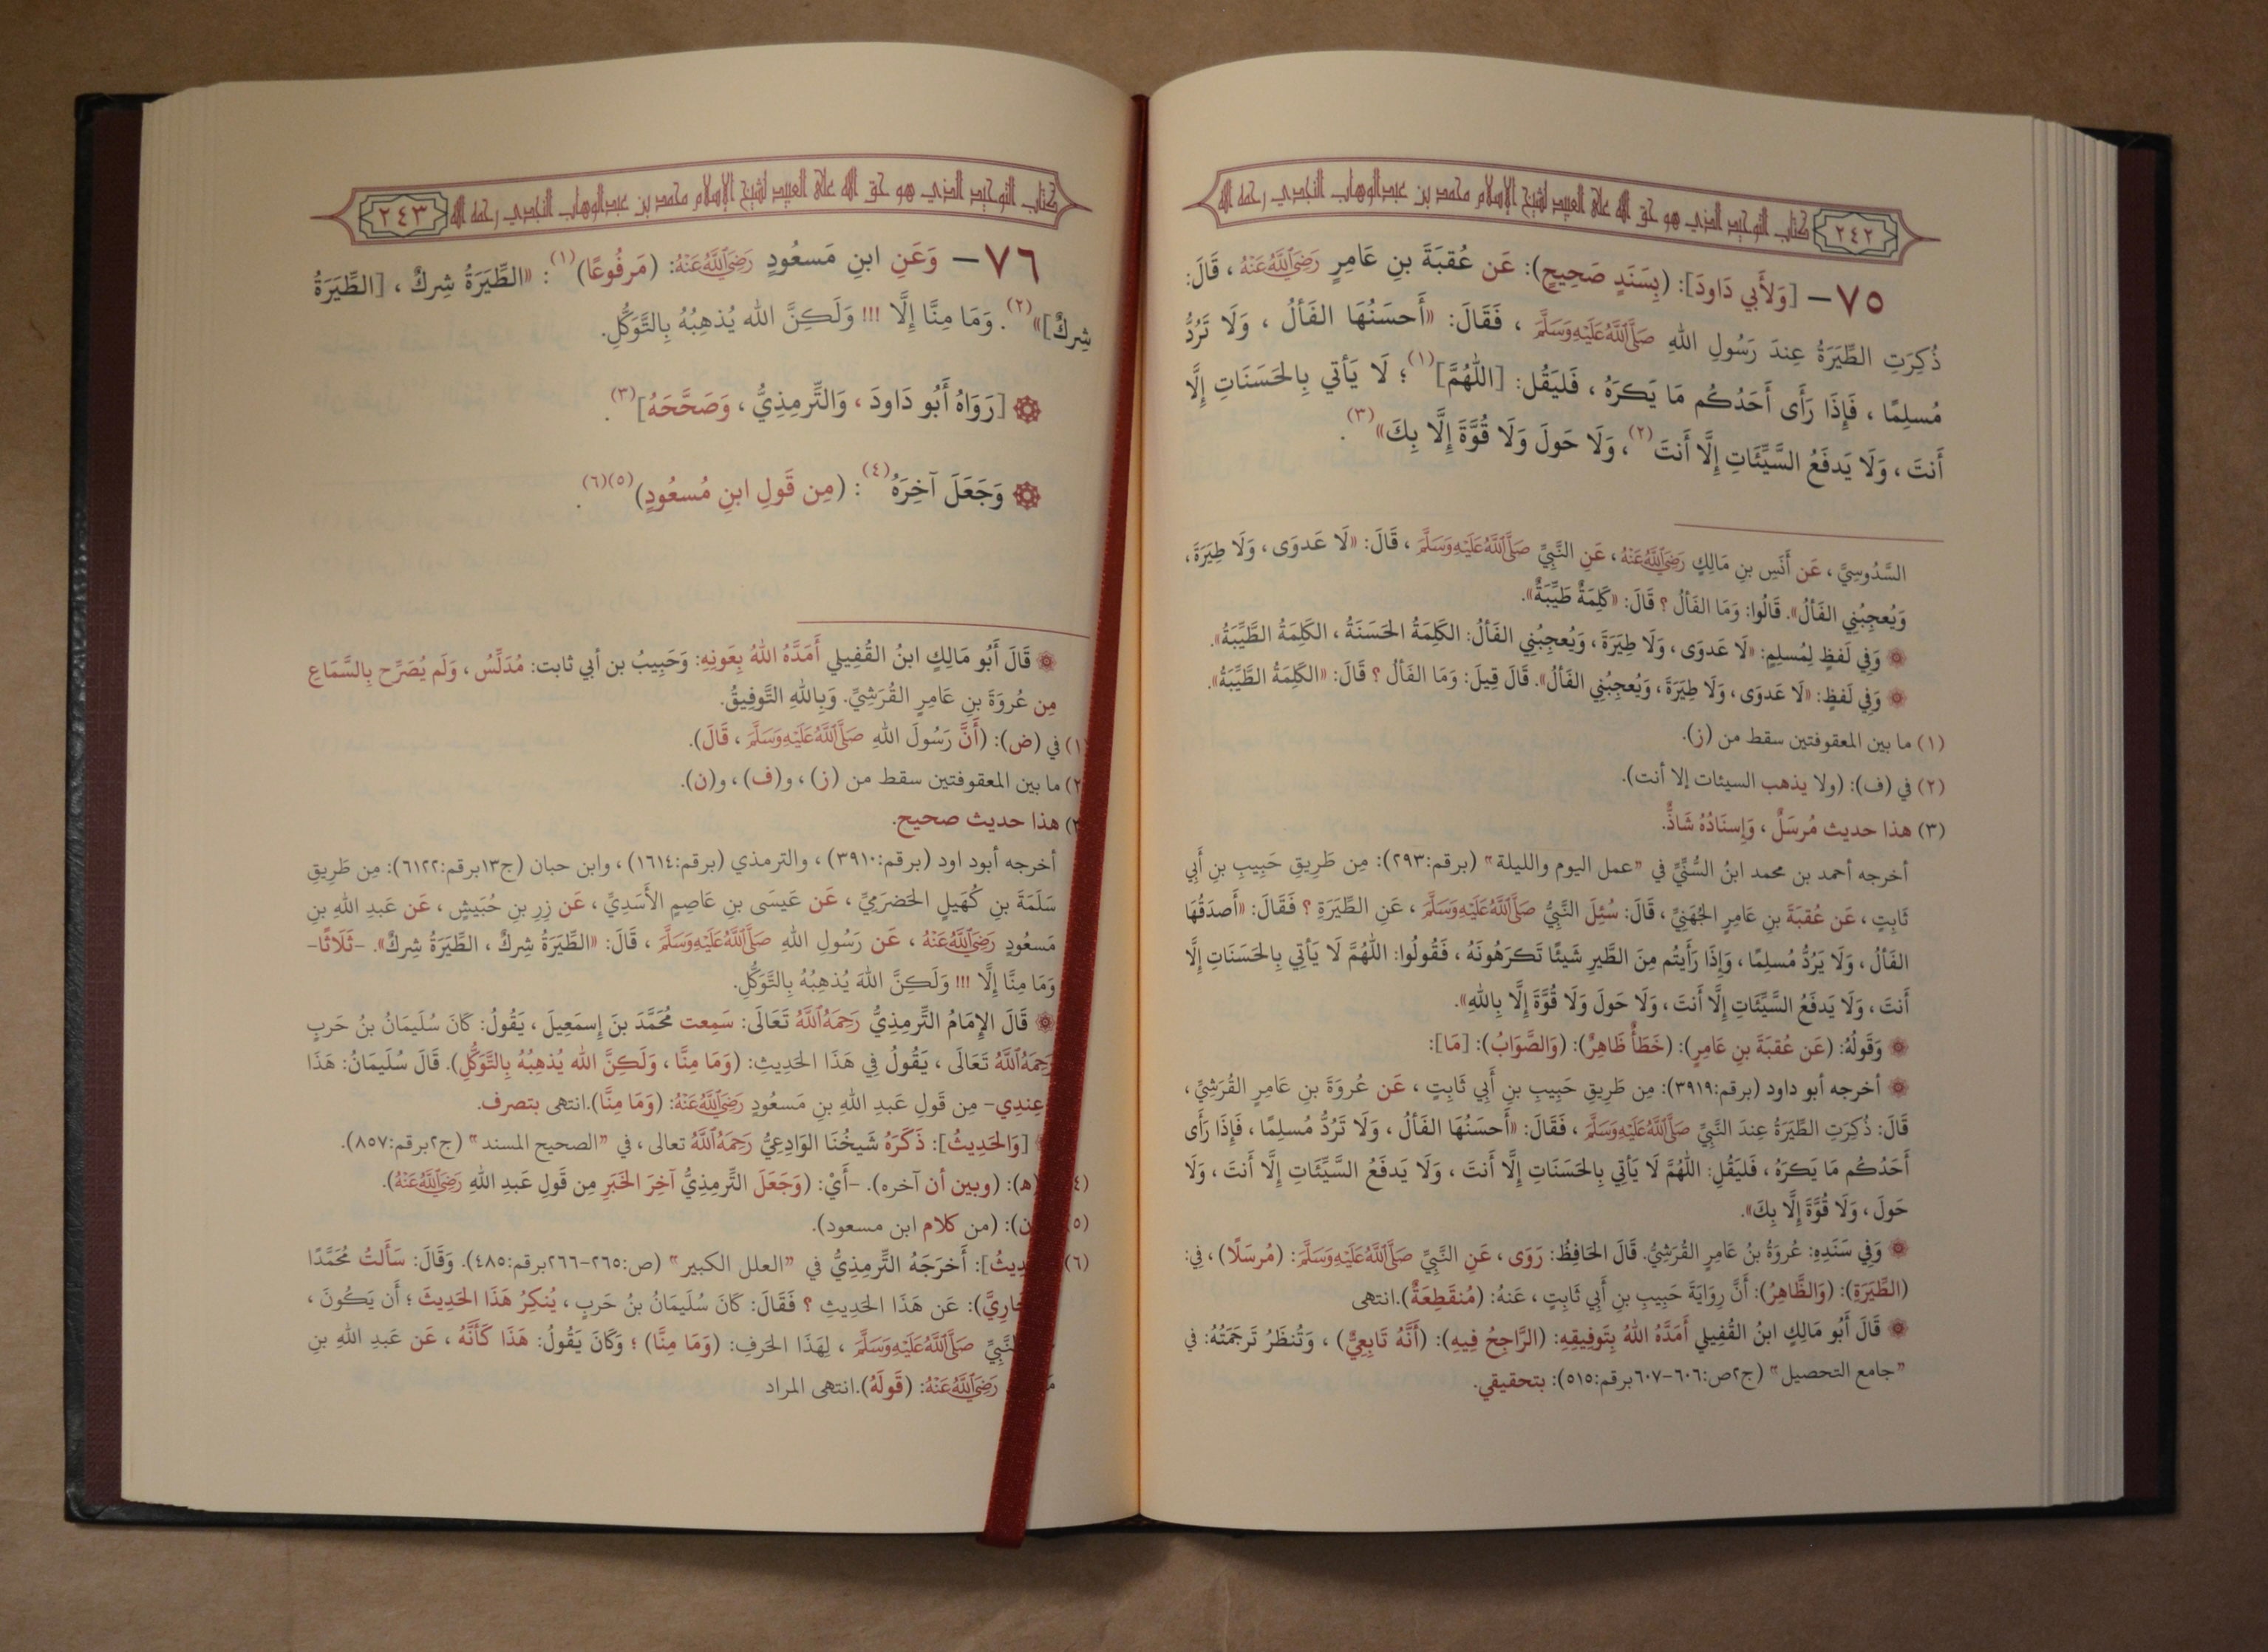 كتاب التوحيد الذي هو حق الله على العبيد لشيخ الإسلام محمد بن عبدالوهاب النجدي رحمه الله
٢٤٢
٧٥ – [وَلأَبِي دَاودَ]: (بِسَنَدٍ صَحِيحٍ): عَن عُقبَةَ بنِ عَامِرٍ رَضِيَ اللَّهُ عَنْهُ ، قَالَ:
ذُكِرَتِ الطِّيَرَةُ عِندَ رَسُولِ اللهِ صَلَّى اللَّهُ عَلَيْهِ وَسَلَّمَ ، فَقَالَ: «أَحسَنُهَا الفَألُ ، وَلَا تَرُدُّ
مُسلِمًا ، فَإِذَا رَأَى أَحَدُكُم مَا يَكرَهُ ، فَليَقُل: [اللَّهُمَّ](١)؛ لَا يَأتي بِالحَسَنَاتِ إِلَّا
أَنتَ ، وَلَا يَدفَعُ السَّيِّئَاتِ إِلَّا أَنتَ(٢)، وَلَا حَولَ وَلَا قُوَّةَ إِلَّا بِكَ»(٣).
السَّدُوسِيَّ ، عَن أَنَسِ بنِ مَالِكٍ رَضِيَ اللَّهُ عَنْهُ ، عَنِ النَّبِيِّ صَلَّى اللَّهُ عَلَيْهِ وَسَلَّمَ ، قَالَ: «لَا عَدوَى ، وَلَا طِيَرَةَ ،
وَيُعجِبُنِي الفَألُ». قَالُوا: وَمَا الفَألُ ؟ قَالَ: «كَلِمَةٌ طَيِّبَةٌ».
وَفِي لَفظٍ لِمُسلِمٍ: «لَا عَدوَى ، وَلَا طِيَرَةَ ، وَيُعجِبُنِي الفَألُ: الكَلِمَةُ الحَسَنَةُ ، الكَلِمَةُ الطَّيِّبَةُ».
وَفِي لَفظٍ: «لَا عَدوَى ، وَلَا طِيَرَةَ ، وَيُعجِبُنِي الفَألُ». قَالَ قِيلَ: وَمَا الفَألُ ؟ قَالَ: «الكَلِمَةُ الطَّيِّبَةُ».
(١) ما بين المعقوفتين سقط من (ز).
(٢) في (ف): (ولا يذهب السيئات إلا أنت).
(٣) هذا حديث مُرسَلٌ ، وَإِسنَادُهُ شَاذٌّ.
أخرجه أحمد بن محمد ابنُ السُّنِّيِّ في "عمل اليوم والليلة" (برقم:٢٩٣): مِن طَرِيقِ حَبِيبِ بنِ أَبِي
ثَابِتٍ ، عَن عُقبَةَ بنِ عَامِرٍ الجُهَنِيِّ ، قَالَ: سُئِلَ النَّبِيُّ صَلَّى اللَّهُ عَلَيْهِ وَسَلَّمَ ، عَنِ الطِّيَرَةِ ؟ فَقَالَ: «أَصدَقُهَا
الفَألُ ، وَلَا يَرُدُّ مُسلِمًا ، وَإِذَا رَأَيتُم مِنَ الطَّيرِ شَيئًا تَكرَهُونَهُ ، فَقُولُوا: اللَّهُمَّ لَا يَأتِي بِالحَسَنَاتِ إِلَّا
أَنتَ ، وَلَا يَدفَعُ السَّيِّئَاتِ إِلَّا أَنتَ ، وَلَا حَولَ وَلَا قُوَّةَ إِلَّا بِاللهِ».
وَقَولُهُ: (عَن عُقبَةَ بنِ عَامِرٍ): (خَطَأٌ ظَاهِرٌ): (وَالصَّوَابُ): [مَا]:
أخرجه أبو داود (برقم:٣٩١٩): مِن طَرِيقِ حَبِيبِ بنِ أَبِي ثَابِتٍ ، عَن عُروَةَ بنِ عَامِرٍ القُرَشِيِّ ،
قَالَ: ذُكِرَتِ الطِّيَرَةُ عِندَ النَّبِيِّ صَلَّى اللَّهُ عَلَيْهِ وَسَلَّمَ ، فَقَالَ: «أَحسَنُهَا الفَألُ ، وَلَا تَرُدُّ مُسلِمًا ، فَإِذَا رَأَى
أَحَدُكُم مَا يَكرَهُ ، فَليَقُلِ: اللَّهُمَّ لَا يَأتِي بِالحَسَنَاتِ إِلَّا أَنتَ ، وَلَا يَدفَعُ السَّيِّئَاتِ إِلَّا أَنتَ ، وَلَا
حَولَ ، وَلَا قُوَّةَ إِلَّا بِكَ».
وَفِي سَنَدِهِ: عُروَةُ بنُ عَامِرٍ القُرَشِيُّ. قَالَ الحَافِظُ: رَوَى ، عَنِ النَّبِيِّ صَلَّى اللَّهُ عَلَيْهِ وَسَلَّمَ: (مُرسَلًا) ، فِي:
(الطِّيَرَةِ): (وَالظَّاهِرُ): أَنَّ رِوَايَةَ حَبِيبِ بنِ أَبِي ثَابِتٍ ، عَنهُ: (مُنقَطِعَةٌ).انتهى
قَالَ أَبُو مَالِكٍ ابنُ القُفِيلي أَمَدَّهُ اللهُ بِتَوفِيقِهِ: (الرَّاجِحُ فِيهِ): (أَنَّهُ تَابِعِيٌّ) ، وَتُنظَرُ تَرجَمَتُهُ: في
"جامع التحصيل" (ج٢ص:٦٠٦-٦٠٧برقم:٥١٥): بتحقيقي.
كتاب التوحيد الذي هو حق الله على العبيد لشيخ الإسلام محمد بن عبدالوهاب النجدي رحمه الله
٢٤٣
٧٦ – وَعَنِ ابنِ مَسعُودٍ رَضِيَ اللَّهُ عَنْهُ: (مَرفُوعًا)(١): «الطِّيَرَةُ شِركٌ ، [الطِّيَرَةُ
شِركٌ]»(٢). وَمَا مِنَّا إِلَّا !!! وَلَكِنَّ الله يُذهِبُهُ بِالتَّوَكُّلِ.
[رَوَاهُ أَبُو دَاودَ ، وَالتِّرمِذِيُّ ، وَصَحَّحَهُ](٣).
وَجَعَلَ آخِرَهُ(٤): (مِن قَولِ ابنِ مُسعُودٍ)(٥)(٦).
قَالَ أَبُو مَالِكٍ ابنُ القُفِيلي أَمَدَّهُ اللهُ بِعَونِهِ: وَحَبِيبُ بن أبي ثابت: مُدَلِّسٌ ، وَلَم يُصَرِّح بِالسَّمَاعِ
مِن عُروَةَ بنِ عَامِرٍ القُرَشِيِّ. وَبِاللهِ التَّوفِيقُ.
(١) في (ض): (أَنَّ رَسُولَ اللهِ صَلَّى اللَّهُ عَلَيْهِ وَسَلَّمَ ، قَالَ).
٢) ما بين المعقوفتين سقط من (ز) ، و(ف) ، و(ن).
٣) هذا حديث صحيح.
أخرجه أبود اود (برقم:٣٩١٠) ، والترمذي (برقم:١٦١٤) ، وابن حبان (ج١٣برقم:٦١٢٢): مِن طَرِيقِ
سَلَمَةَ بنِ كُهَيلٍ الحَضرَمِيِّ ، عَن عَيسَى بنِ عَاصِمٍ الأَسَدِيِّ ، عَن زِرِ بنِ حُبَيشٍ ، عَن عَبدِ اللهِ بنِ
مَسعُودٍ رَضِيَ اللَّهُ عَنْهُ ، عَن رَسُولِ اللهِ صَلَّى اللَّهُ عَلَيْهِ وَسَلَّمَ ، قَالَ: «الطِّيَرَةُ شِركٌ ، الطِّيَرَةُ شِركٌ». -ثَلَاثًا-
وَمَا مِنَّا إِلَّا !!! وَلَكِنَّ اللهَ يُذهِبُهُ بِالتَّوَكُّلِ.
قَالَ الإِمَامُ التِّرمِذِيُّ رَحِمَهُ اللَّهُ تَعَالَى: سَمِعت مُحَمَّدَ بنَ إِسمَعِيلَ ، يَقُولُ: كَانَ سُلَيمَانُ بنُ حَربٍ
رَحِمَهُ اللَّهُ تَعَالَى ، يَقُولُ فِي هَذَا الحَدِيثِ: (وَمَا مِنَّا ، وَلَكِنَّ الله يُذهِبُهُ بِالتَّوَكُّلِ). قَالَ سُلَيمَانُ: هَذَا
عِندِي- مِن قَولِ عَبدِ اللهِ بنِ مَسعُودٍ رَضِيَ اللَّهُ عَنْهُ: (وَمَا مِنَّا).انتهى بتصرف.
[وَالحَدِيثُ]: ذَكَرَهُ شَيخُنَا الوَادِعِيُّ رَحِمَهُ اللَّهُ تعالى ، في "الصحيح المسند" (ج٢برقم:٨٥٧).
(٤ ه): (وبين أن آخره). -أَيْ: (وَجَعَلَ التِّرمِذِيُّ آخِرَ الخَبَرِ مِن قَولِ عَبدِ اللهِ رَضِيَ اللَّهُ عَنْهُ).
(٥ ن): (من كلام ابن مسعود).
(٦) دِيثُ]: أَخرَجَهُ التِّرمِذِيُّ في "العلل الكبير" (ص:٢٦٥-٢٦٦برقم:٤٨٥). وَقَالَ: سَأَلتُ مُحَمَّدًا
خَارِيَّ): عَن هَذَا الحَدِيثِ ؟ فَقَالَ: كَانَ سُلَيمَانُ بنُ حَربٍ ، يُنكِرُ هَذَا الحَدِيثَ ؛ أَن يَكُونَ ،
النَّبِيِّ صَلَّى اللَّهُ عَلَيْهِ وَسَلَّمَ ، لِهَذَا الحَرفِ: (وَمَا مِنَّا) ؛ وَكَانَ يَقُولُ: هَذَا كَأَنَّهُ ، عَن عَبدِ اللهِ بنِ
رَضِيَ اللَّهُ عَنْهُ: (قَولَهُ).انتهى المراد